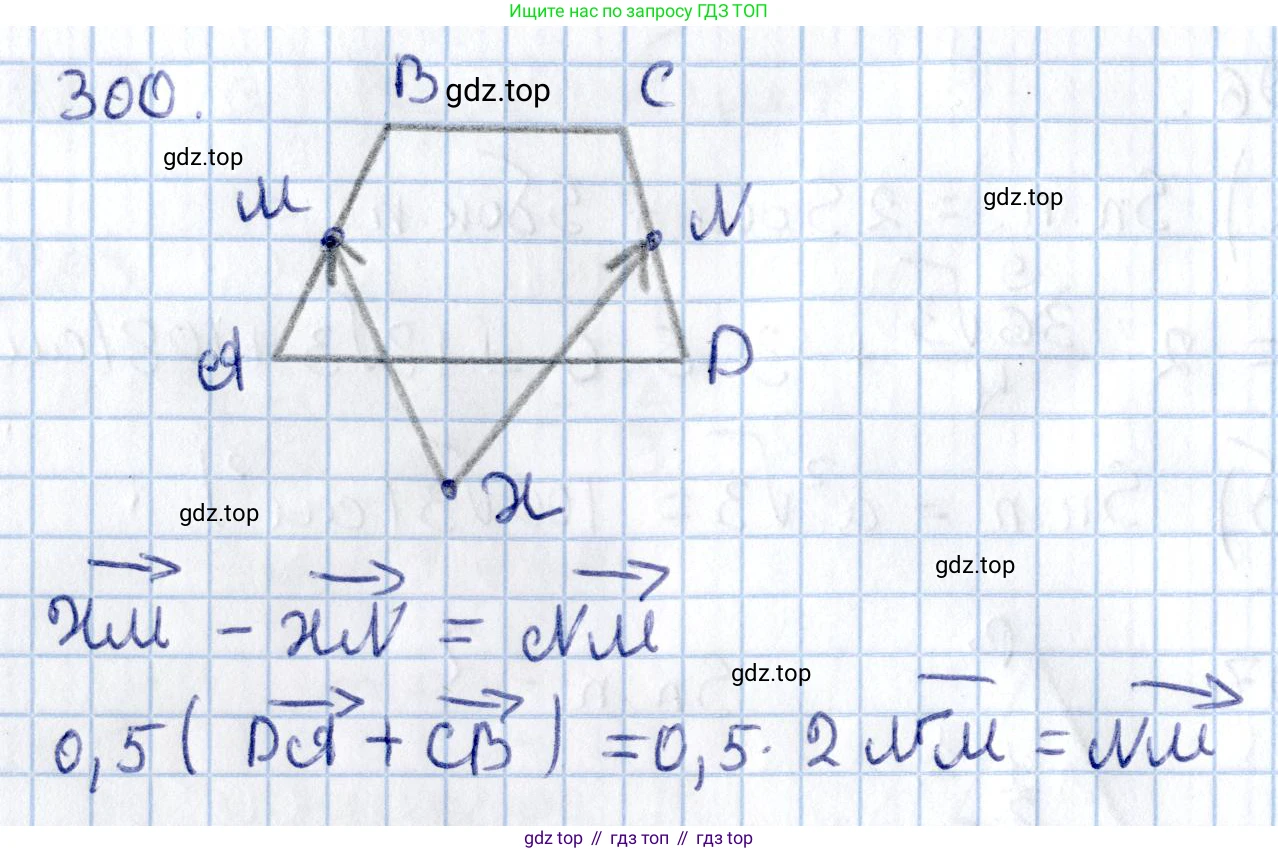 Ищите нас по запросу ГДЗ ТОП
300.
B
gdz.top
C
gdz.top
M
N
gdz.top
A
D
X
gdz.top
gdz.top
XM - XN = NM
gdz.top
0,5( DA + CB ) = 0,5 · 2 NM = NM
gdz top // гдз топ // гдз top